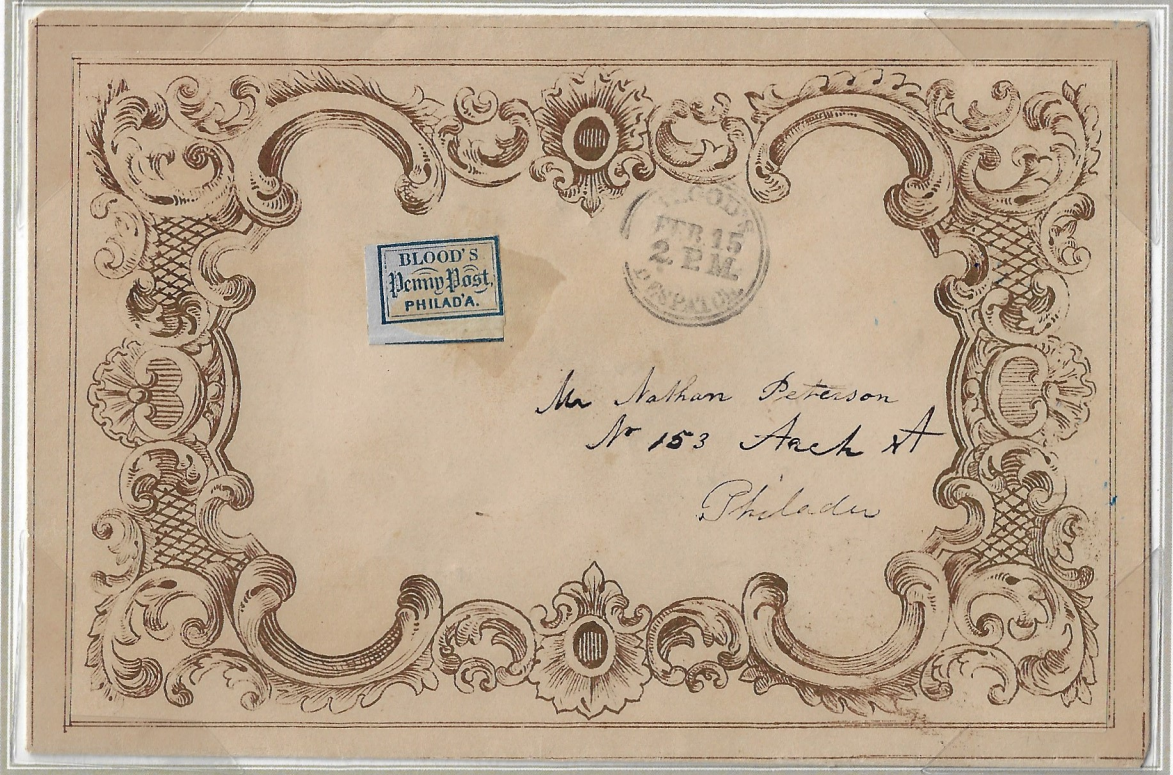 BLOOD'S
Penny Post,
PHILAD'A.
BLOOD'S
FEB 15
2 P.M.
DESPATCH
Mr Nathan Peterson
No 153 Arch St
Philada